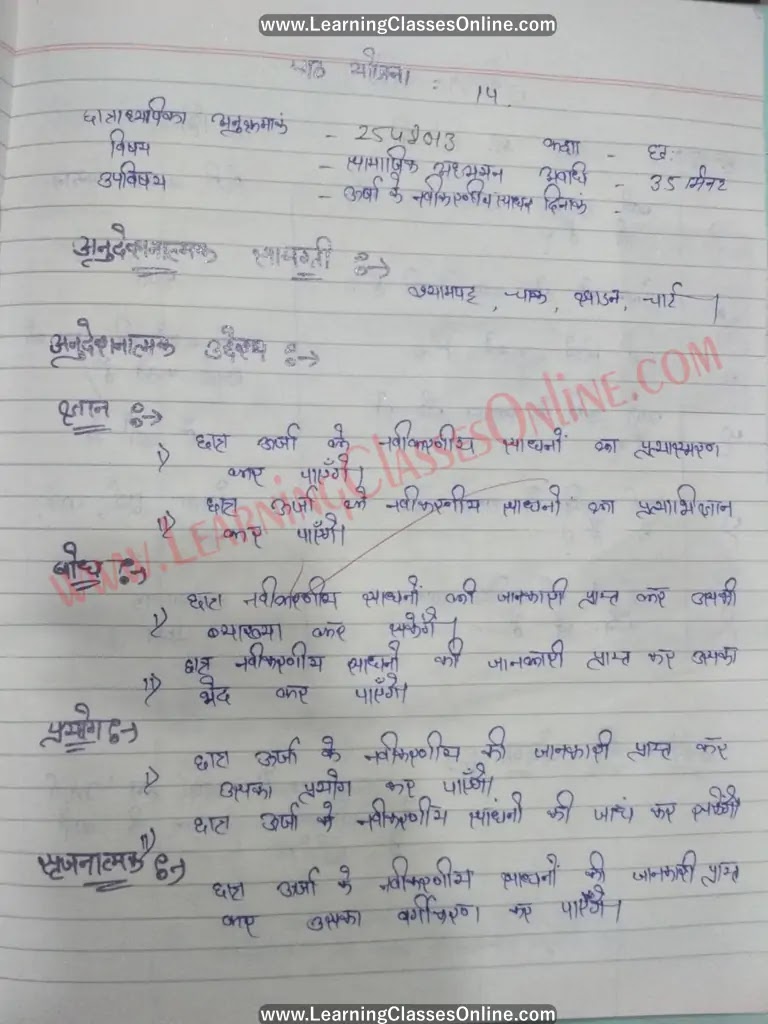 www.LearningClassesOnline.com
पाठ योजना : 14.
छात्राध्यापिका अनुक्रमांक - 2542013 कक्षा - छः
विषय - सामाजिक अध्ययन अवधि - 35 मिनट
उपविषय - ऊर्जा के नवीकरणीय साधन दिनांक -
अनुदेशनात्मक सामग्री :→
श्यामपट्ट, चाक, झाडन, चार्ट।
अनुदेशनात्मक उद्देश्य :→
ज्ञान :→
i) छात्र ऊर्जा के नवीकरणीय साधनों का प्रत्यास्मरण
कर पाएँगे।
ii) छात्र ऊर्जा के नवीकरणीय साधनों का प्रत्याभिज्ञान
कर पाएँगे।
बोध :→
i) छात्र नवीकरणीय साधनों की जानकारी प्राप्त कर उसकी
व्याख्या कर सकेंगे।
ii) छात्र नवीकरणीय साधनों की जानकारी प्राप्त कर उसका
भेद कर पाएँगे।
प्रयोग :→
i) छात्र ऊर्जा के नवीकरणीय की जानकारी प्राप्त कर
उसका प्रयोग कर पाएँगे।
ii) छात्र ऊर्जा के नवीकरणीय साधंनो की जाचं कर सकेंगे
सृजनात्मक :→
छात्र ऊर्जा के नवीकरणीय साधनों की जानकारी प्राप्त
कर उसका वर्गीकरण कर पाएँगे।
www.LearningClassesOnline.com
www.LearningClassesOnline.com